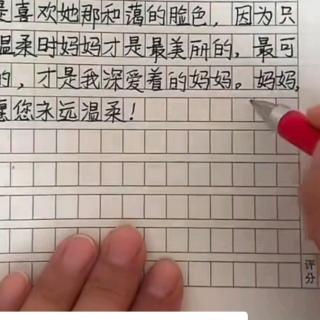 是喜欢她那和蔼的脸色，因为只
温柔时妈妈才是最美丽的，最可
的，才是我深爱着的妈妈。妈妈，
您永远温柔！
评分